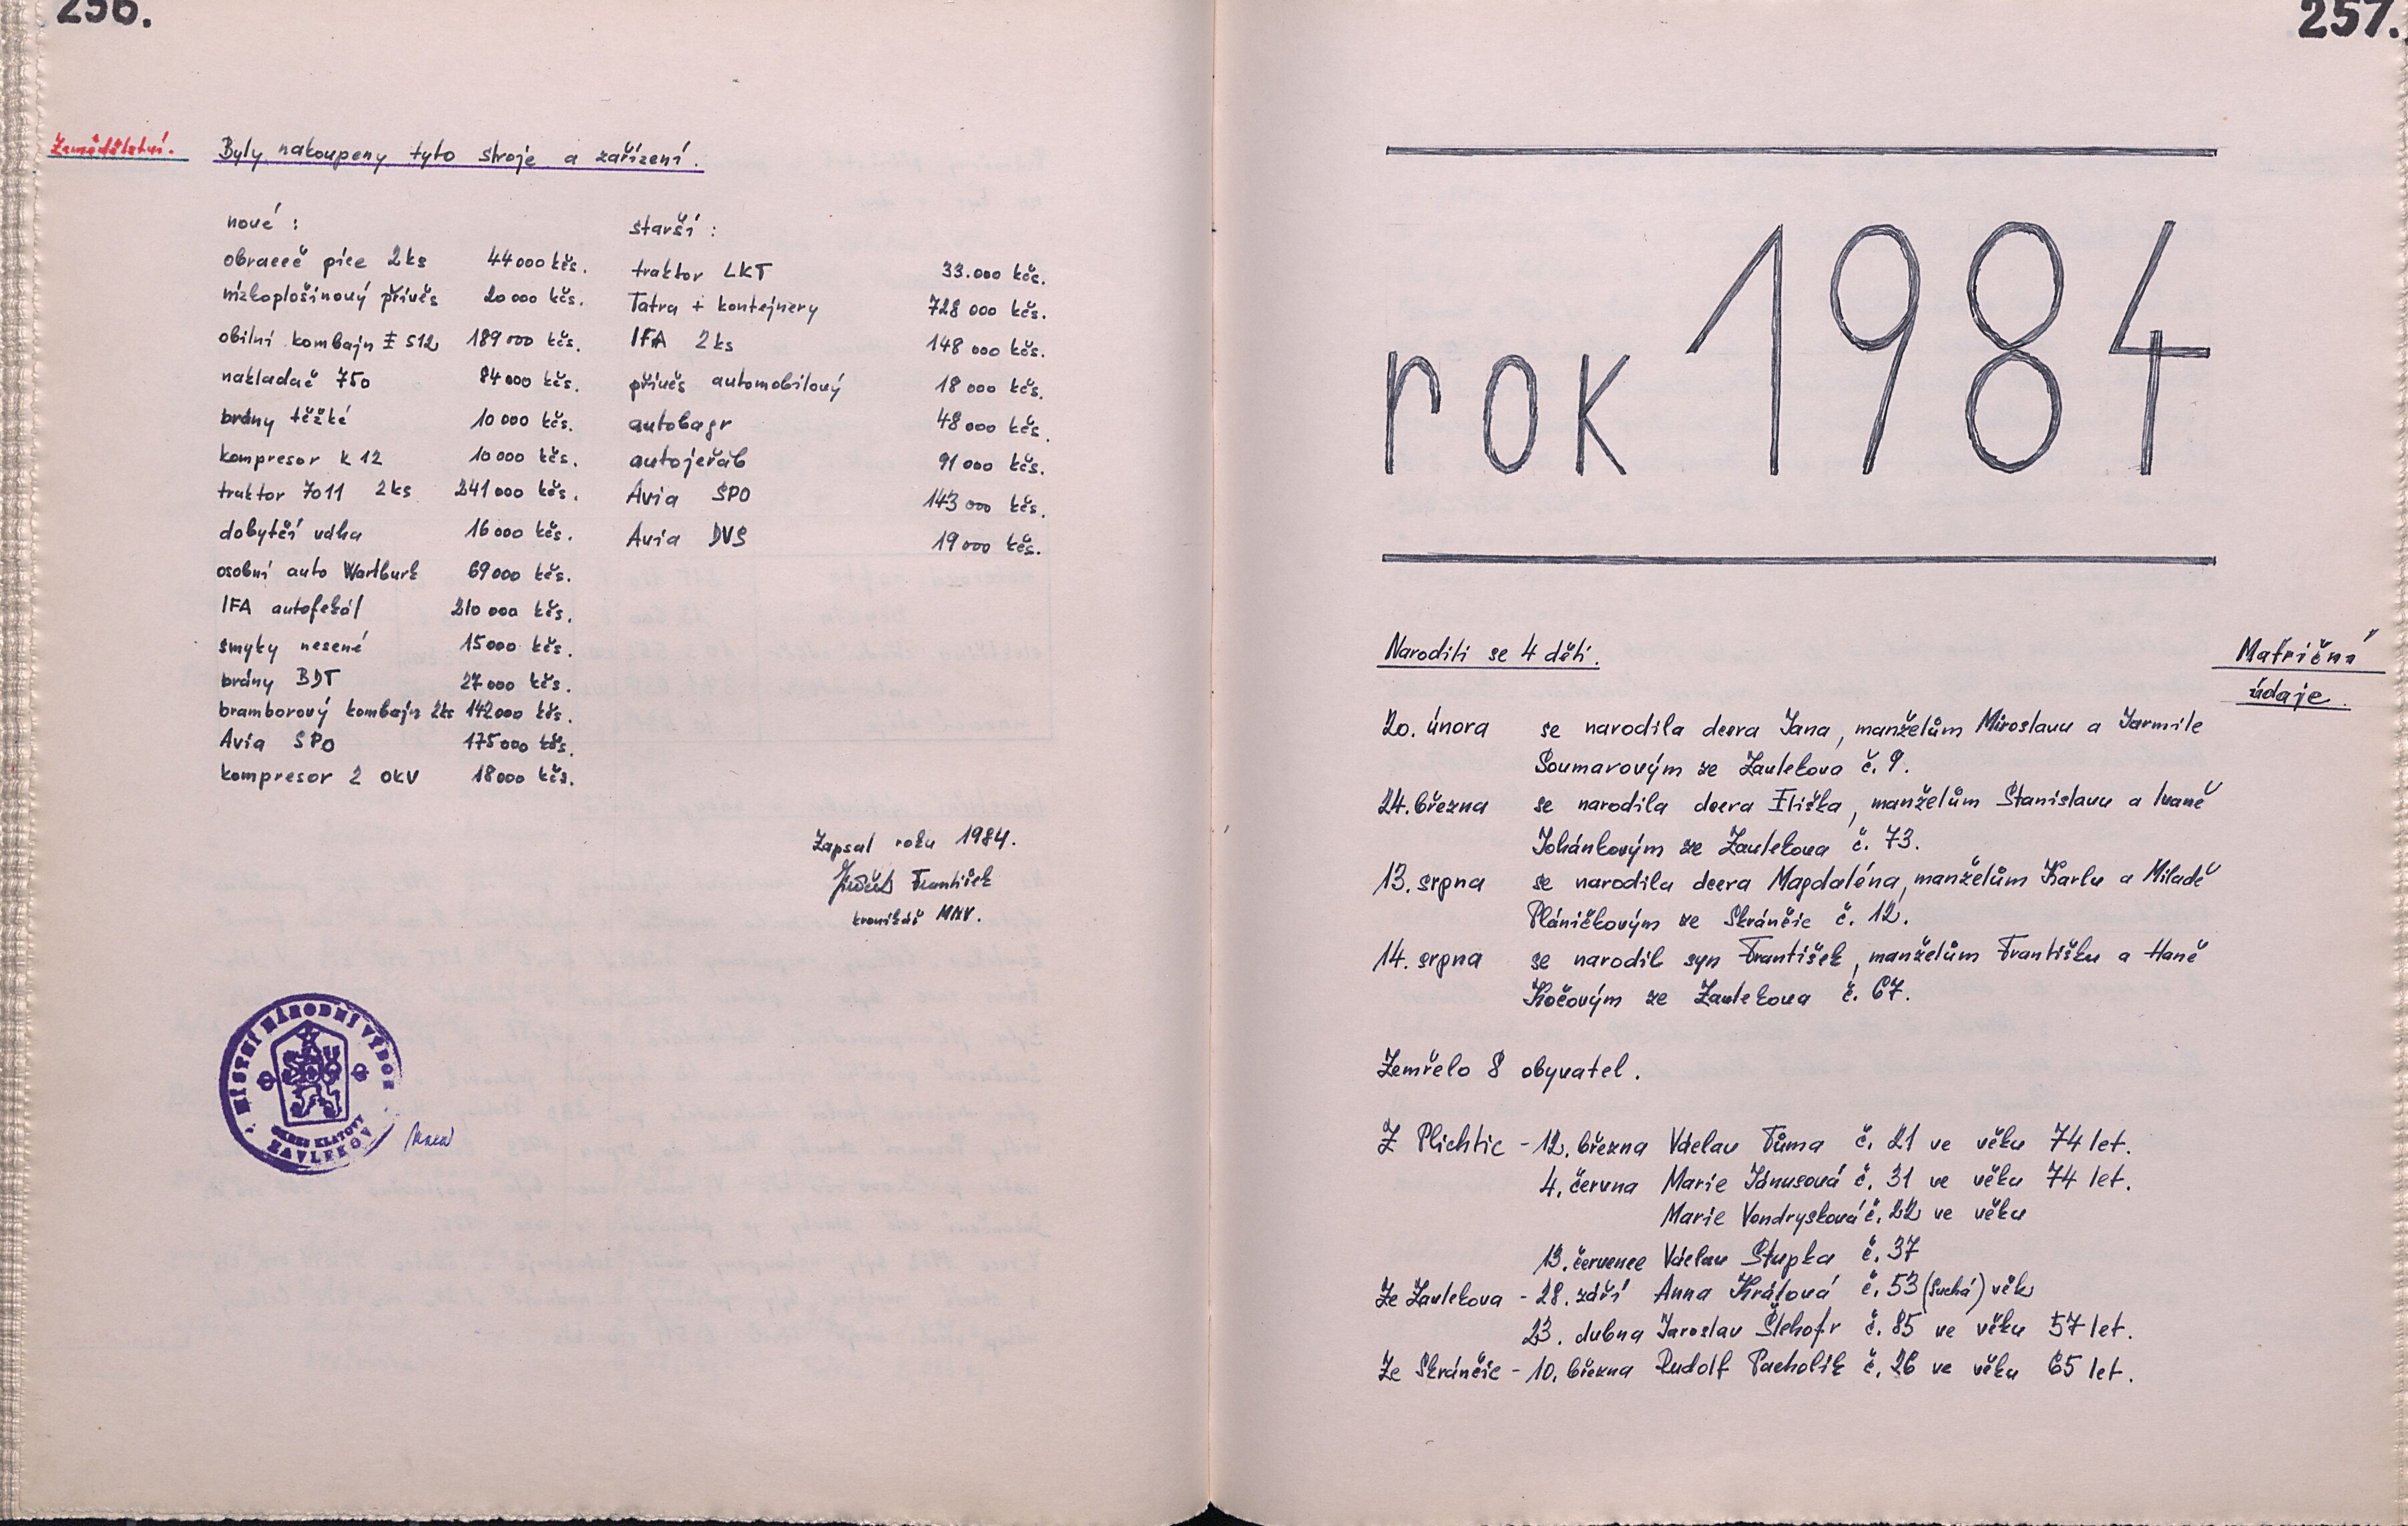 256.
Zemědělství.
Byly nakoupeny tyto stroje a zařízení.
nové :
obraceč píce 2ks 44000 kčs.
nízkoplošinový přívěs 20000 kčs.
obilní kombajn E 512 189000 kčs.
nakladač 750 84000 kčs.
brány těžké 10000 kčs.
kompresor K 12 10000 kčs.
traktor 7011 2ks 241000 kčs.
dobytčí váha 16000 kčs.
osobní auto Wartburk 69000 kčs.
IFA autofekál 210000 kčs.
smyky nesené 15000 kčs.
brány BDT 27000 kčs.
bramborový kombajn 2ks 142000 kčs.
Avia SPO 175000 kčs.
kompresor 2 OKV 18000 kčs.
starší :
traktor LKT 33.000 kčs.
Tatra + kontejnery 728 000 kčs.
IFA 2ks 148 000 kčs.
přívěs automobilový 18 000 kčs.
autobagr 48 000 kčs.
autojeřáb 91 000 kčs.
Avia SPO 143 000 kčs.
Avia DVS 19 000 kčs.
Zapsal roku 1984.
František
kronikář MNV.
MÍSTNÍ NÁRODNÍ VÝBOR
OKRES KLATOVY
ZAVLEKOV
257.
rok 1984
Matriční
údaje.
Narodili se 4 děti.
20. února se narodila dcera Jana, manželům Miroslavu a Jarmile
Soumarovým ze Zavlekova č. 9.
24. března se narodila dcera Eliška, manželům Stanislavu a Ivaně
Johánkovým ze Zavlekova č. 73.
13. srpna se narodila dcera Magdaléna, manželům Karlu a Miladě
Pláničkovým ze Skránčic č. 12.
14. srpna se narodil syn František, manželům Františku a Haně
Kočovým ze Zavlekova č. 67.
Zemřelo 8 obyvatel.
Z Plichtic - 12. března Václav Tůma č. 21 ve věku 74 let.
4. června Marie Jánusová č. 31 ve věku 74 let.
Marie Vondrysková č. 22 ve věku
13. červenec Václav Stupka č. 37
Ze Zavlekova - 28. září Anna Králová č. 53 (Suchá) věk
23. dubna Jaroslav Šlehofr č. 85 ve věku 57 let.
Ze Skránčic - 10. března Rudolf Pacholík č. 26 ve věku 65 let.